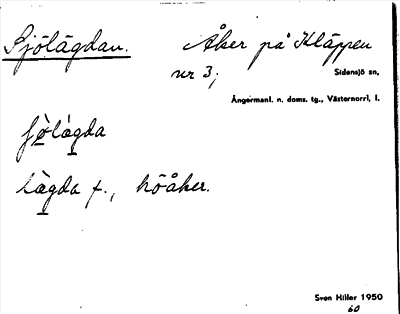 Sjölägdan. Åker på Kläppen
nr 3; Sidensjö sn,
Ångermanl. n. doms. tg., Västernorrl. l.
ʃö̀lägda
Lägda f., höåker.
Sven Hiller 1950
60